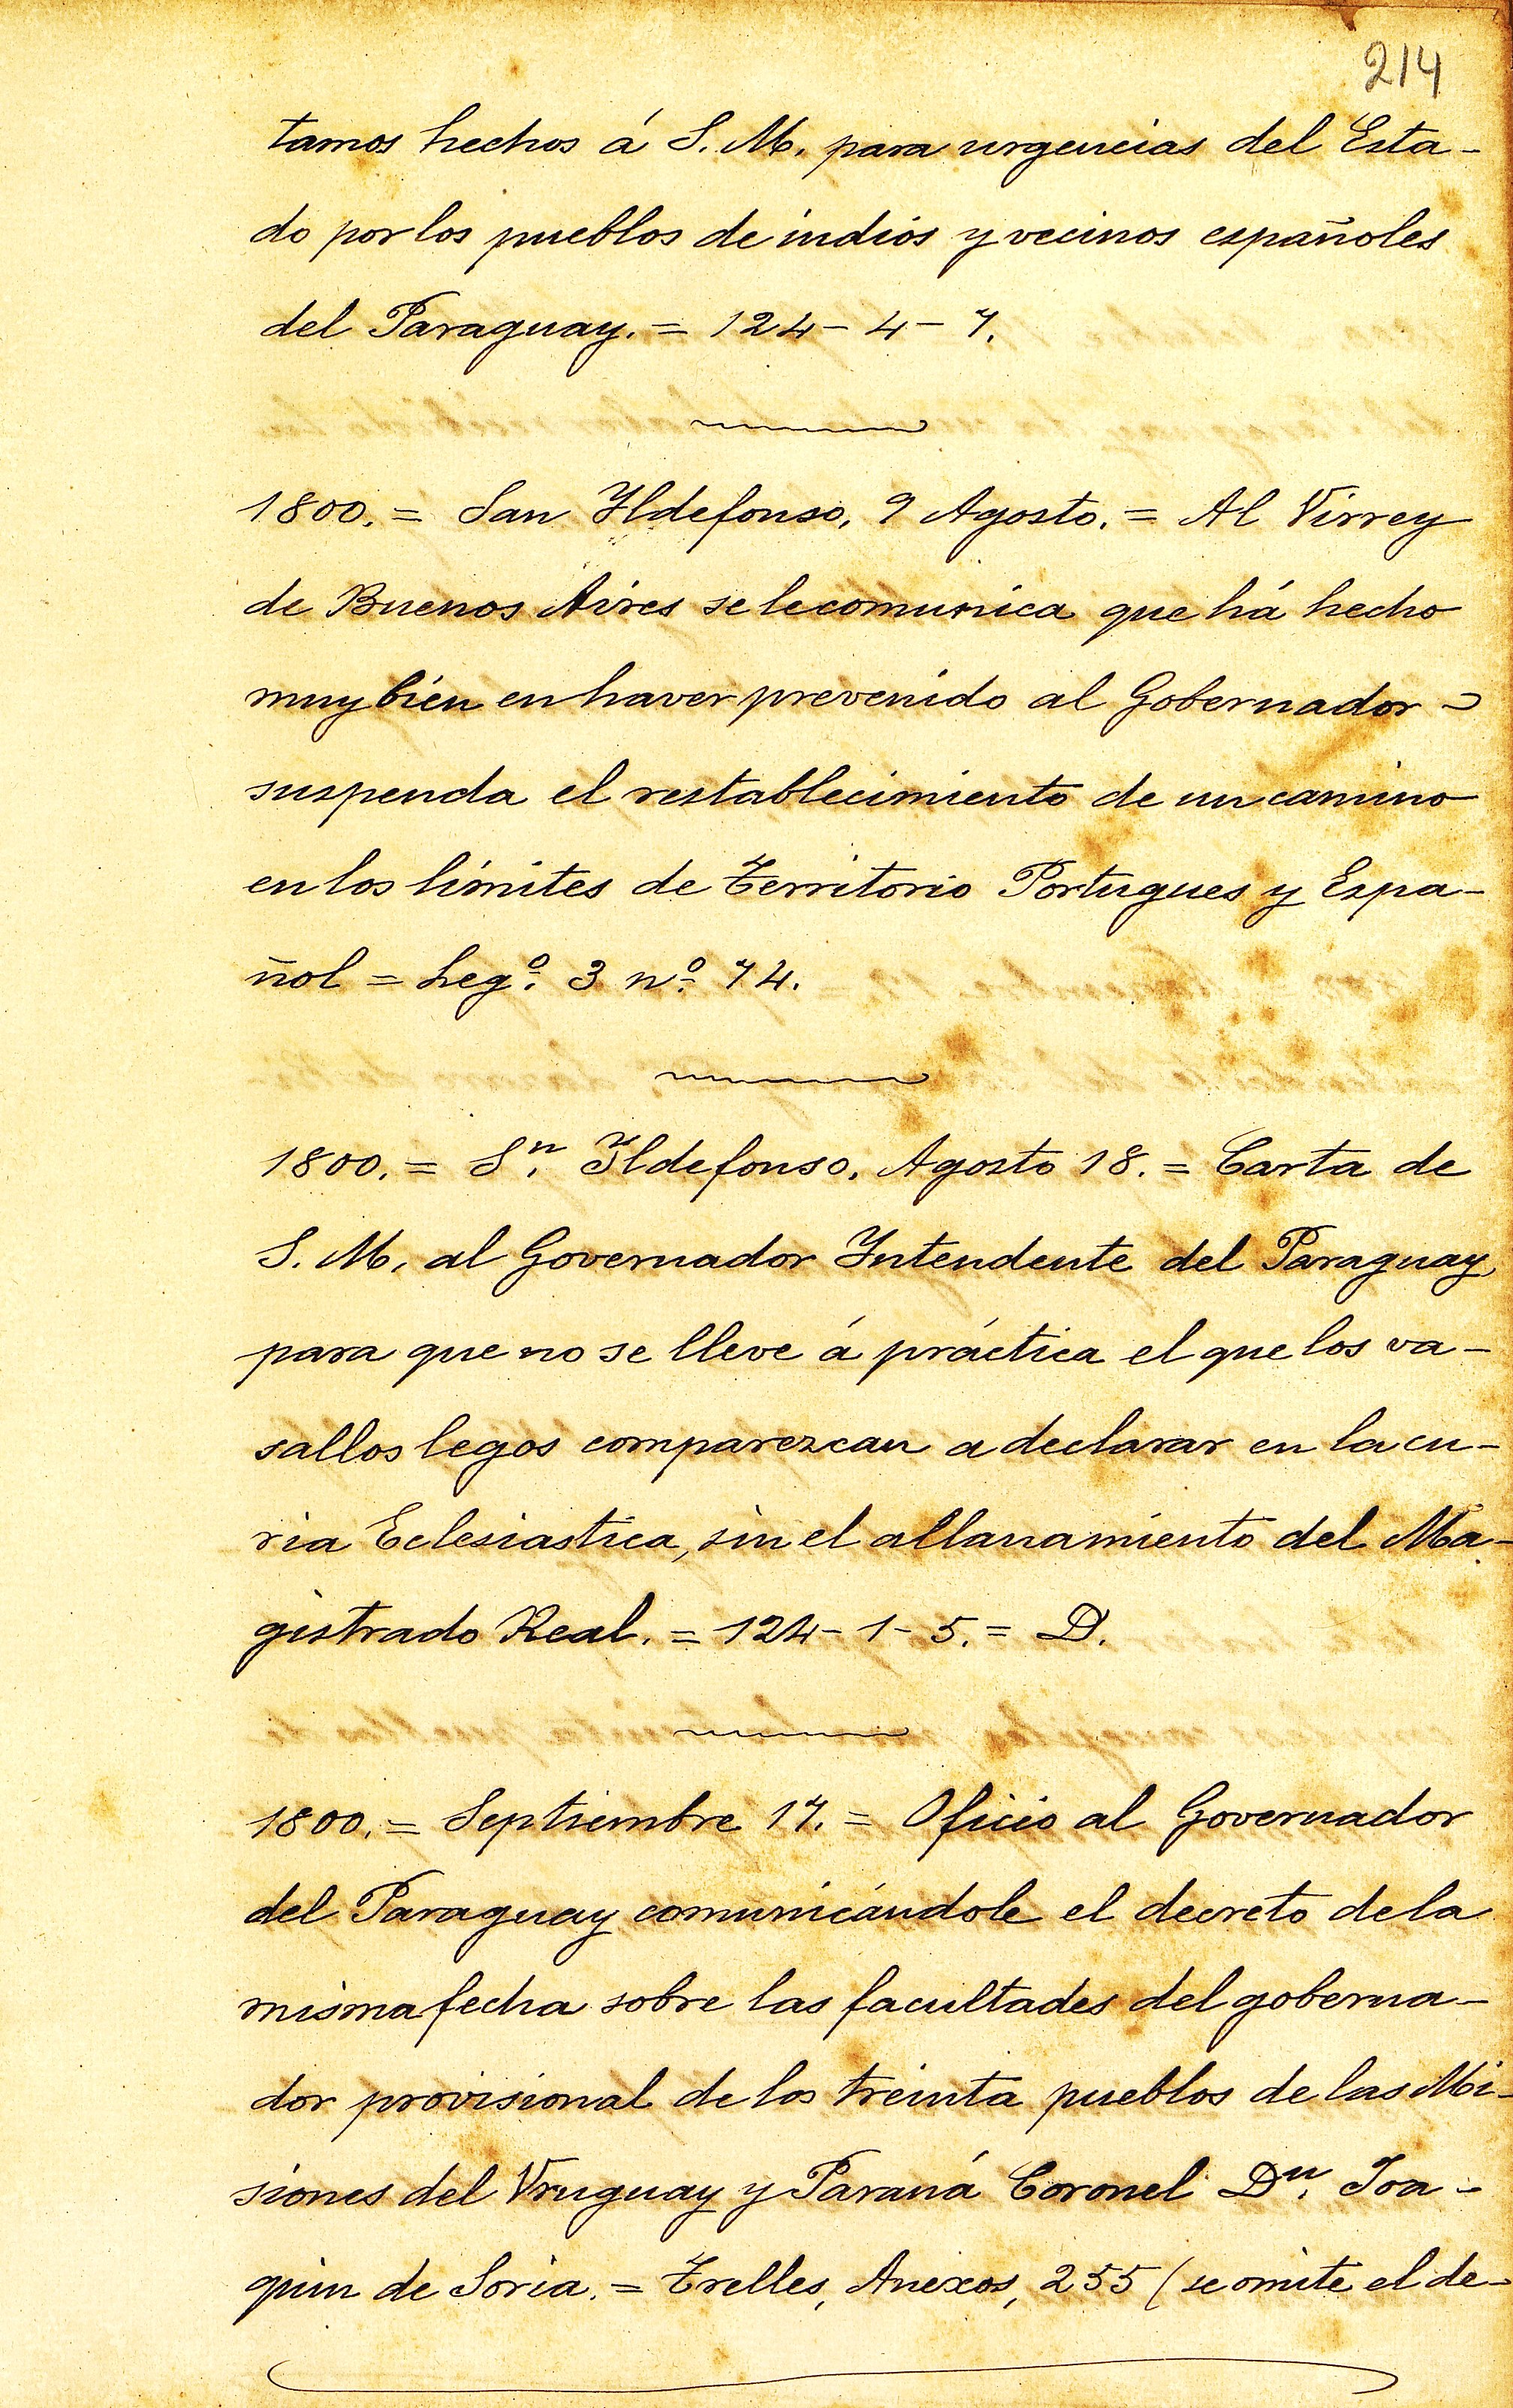 214
tamos hechos á S. M. para urgencias del Esta-
do por los pueblos de indios y vecinos españoles
del Paraguay. = 124 - 4 - 7.
1800. = San Ildefonso, 9 Agosto. = Al Virrey
de Buenos Aires se le comunica que há hecho
muy bien en haver prevenido al Gobernador
suspenda el restablecimiento de un camino
en los límites de Territorio Portugues y Espa-
ñol = Legº. 3 nº. 74.
1800. = Sn. Ildefonso, Agosto 18. = Carta de
S. M. al Governador Intendente del Paraguay
para que no se lleve á práctica el que los va-
sallos legos comparezcan a declarar en la cu-
ria Eclesiastica, sin el allanamiento del Ma-
gistrado Real. = 124 - 1 - 5. = D.
1800. = Septiembre 17. = Oficio al Governador
del Paraguay comunicándole el decreto de la
misma fecha sobre las facultades del goberna-
dor provisional de los treinta pueblos de las Mi-
siones del Vruguay y Paraná Coronel Dn. Joa-
quin de Soria. = Trelles, Anexos, 255 (se omite el de-